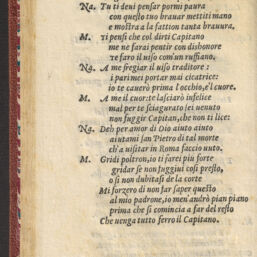 Na. Tu ti deui pensar pormi paura
con questo tuo brauar mettiti mano
e mostra a la fattion tanta brauura.
M. Ti pensi che col dirti Capitano
me ne farai pentir con dishonore
te faro il uiso com'un ruffiano.
Na. A me sfregiar il uiso traditore:
i pari mei portar mai cicatrice:
io te cauerò prima l'occhio, e'l cuore.
M. A me il cuor: te lasciarò infelice
mal per te sciagurato sei uenuto
non fuggir Capitan, che non ti lice:
Na. Deh per amor di Dio aiuto aiuto
aiutami san Pietro di tal morte
ch'a uisitar in Roma faccio uuto.
M. Gridi poltron, io ti farei piu forte
gridar se non fuggiui cosi presto,
o si non dubitasi de la corte
Mi sforzero di non far saper questo
al mio padrone, io men'andrò pian piano
prima che si comincia a far del resto
Che uenga tutto ferro il Capitano.